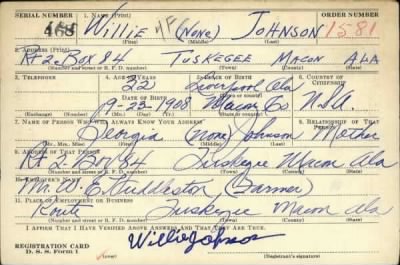 SERIAL NUMBER 1. NAME (Print) ORDER NUMBER
468 Willie (None) Johnson 1581
(First) (Middle) (Last)
2. ADDRESS (Print)
Rt 2 Box 84 Tuskegee Macon Ala
(Number and street or R. F. D. number) (Town) (County) (State)
3. TELEPHONE 4. AGE IN YEARS 5. PLACE OF BIRTH 6. COUNTRY OF CITIZENSHIP
32 Liverpool Ala
DATE OF BIRTH
9-22-1908 Macon Co U.S.A.
(Exchange) (Number) (Mo.) (Day) (Yr.) (Town or county) (State or country)
7. NAME OF PERSON WHO WILL ALWAYS KNOW YOUR ADDRESS 8. RELATIONSHIP OF THAT PERSON
Georgia (None) Johnson Mother
(Mr., Mrs., Miss) (First) (Middle) (Last)
9. ADDRESS OF THAT PERSON
Rt 2-Box 84 Tuskegee Macon Ala
(Number and street or R. F. D. number) (Town) (County) (State)
10. EMPLOYER'S NAME
Mr. W. E. Huddleston (Farmer)
11. PLACE OF EMPLOYMENT OR BUSINESS
Route Tuskegee Macon Ala
(Number and street or R. F. D. number) (Town) (County) (State)
I AFFIRM THAT I HAVE VERIFIED ABOVE ANSWERS AND THAT THEY ARE TRUE.
REGISTRATION CARD
D. S. S. Form 1
Willie Johnson
(Registrant's signature)